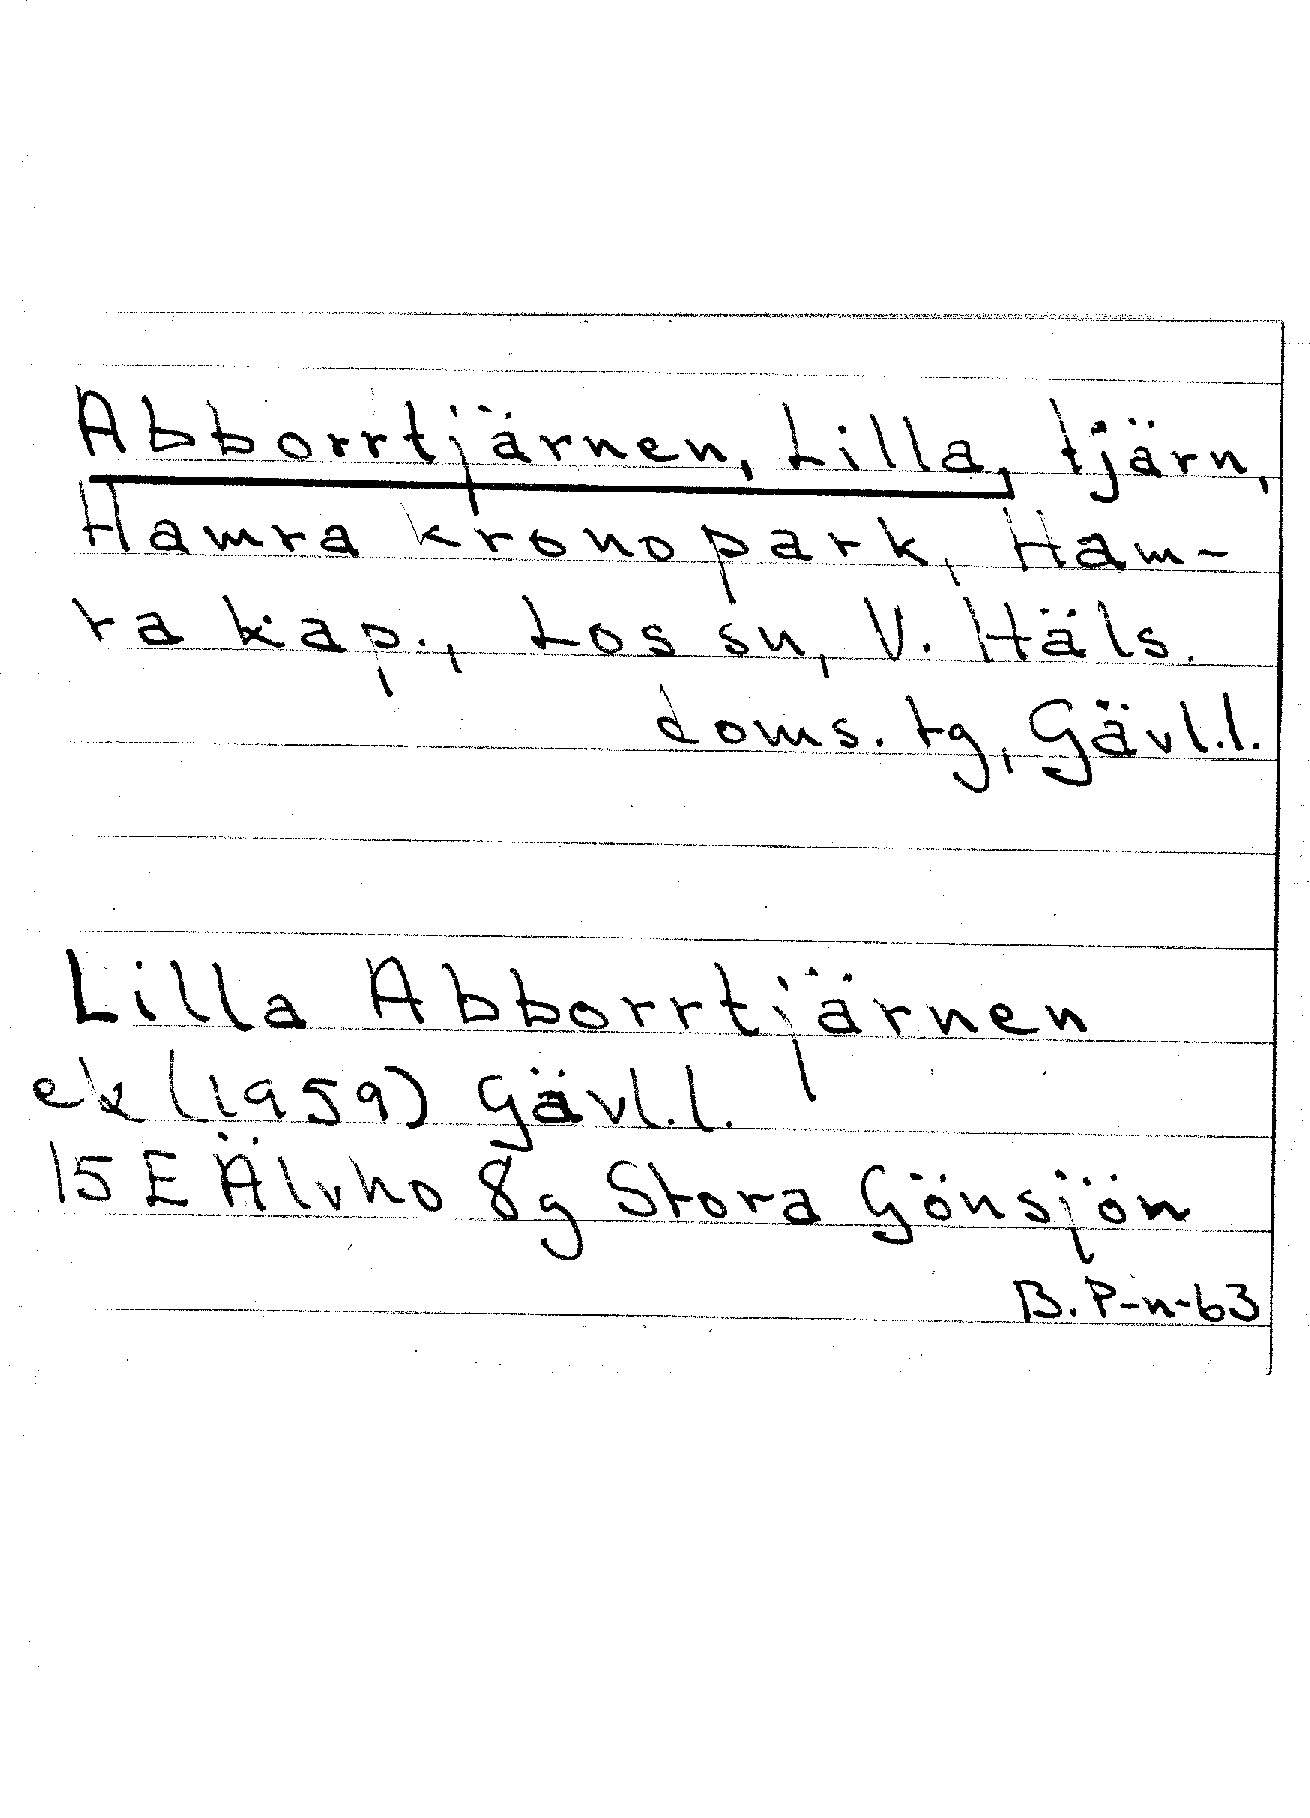 Abborrtjärnen, Lilla, tjärn,
Hamra kronopark, Ham-
ra kap., Los sn, V. Häls.
doms. tg, Gävl.l.
Lilla Abborrtjärnen
ek (1959) Gävl.l.
15 E Älvho 8g Stora Gönsjön
B. P-n-63